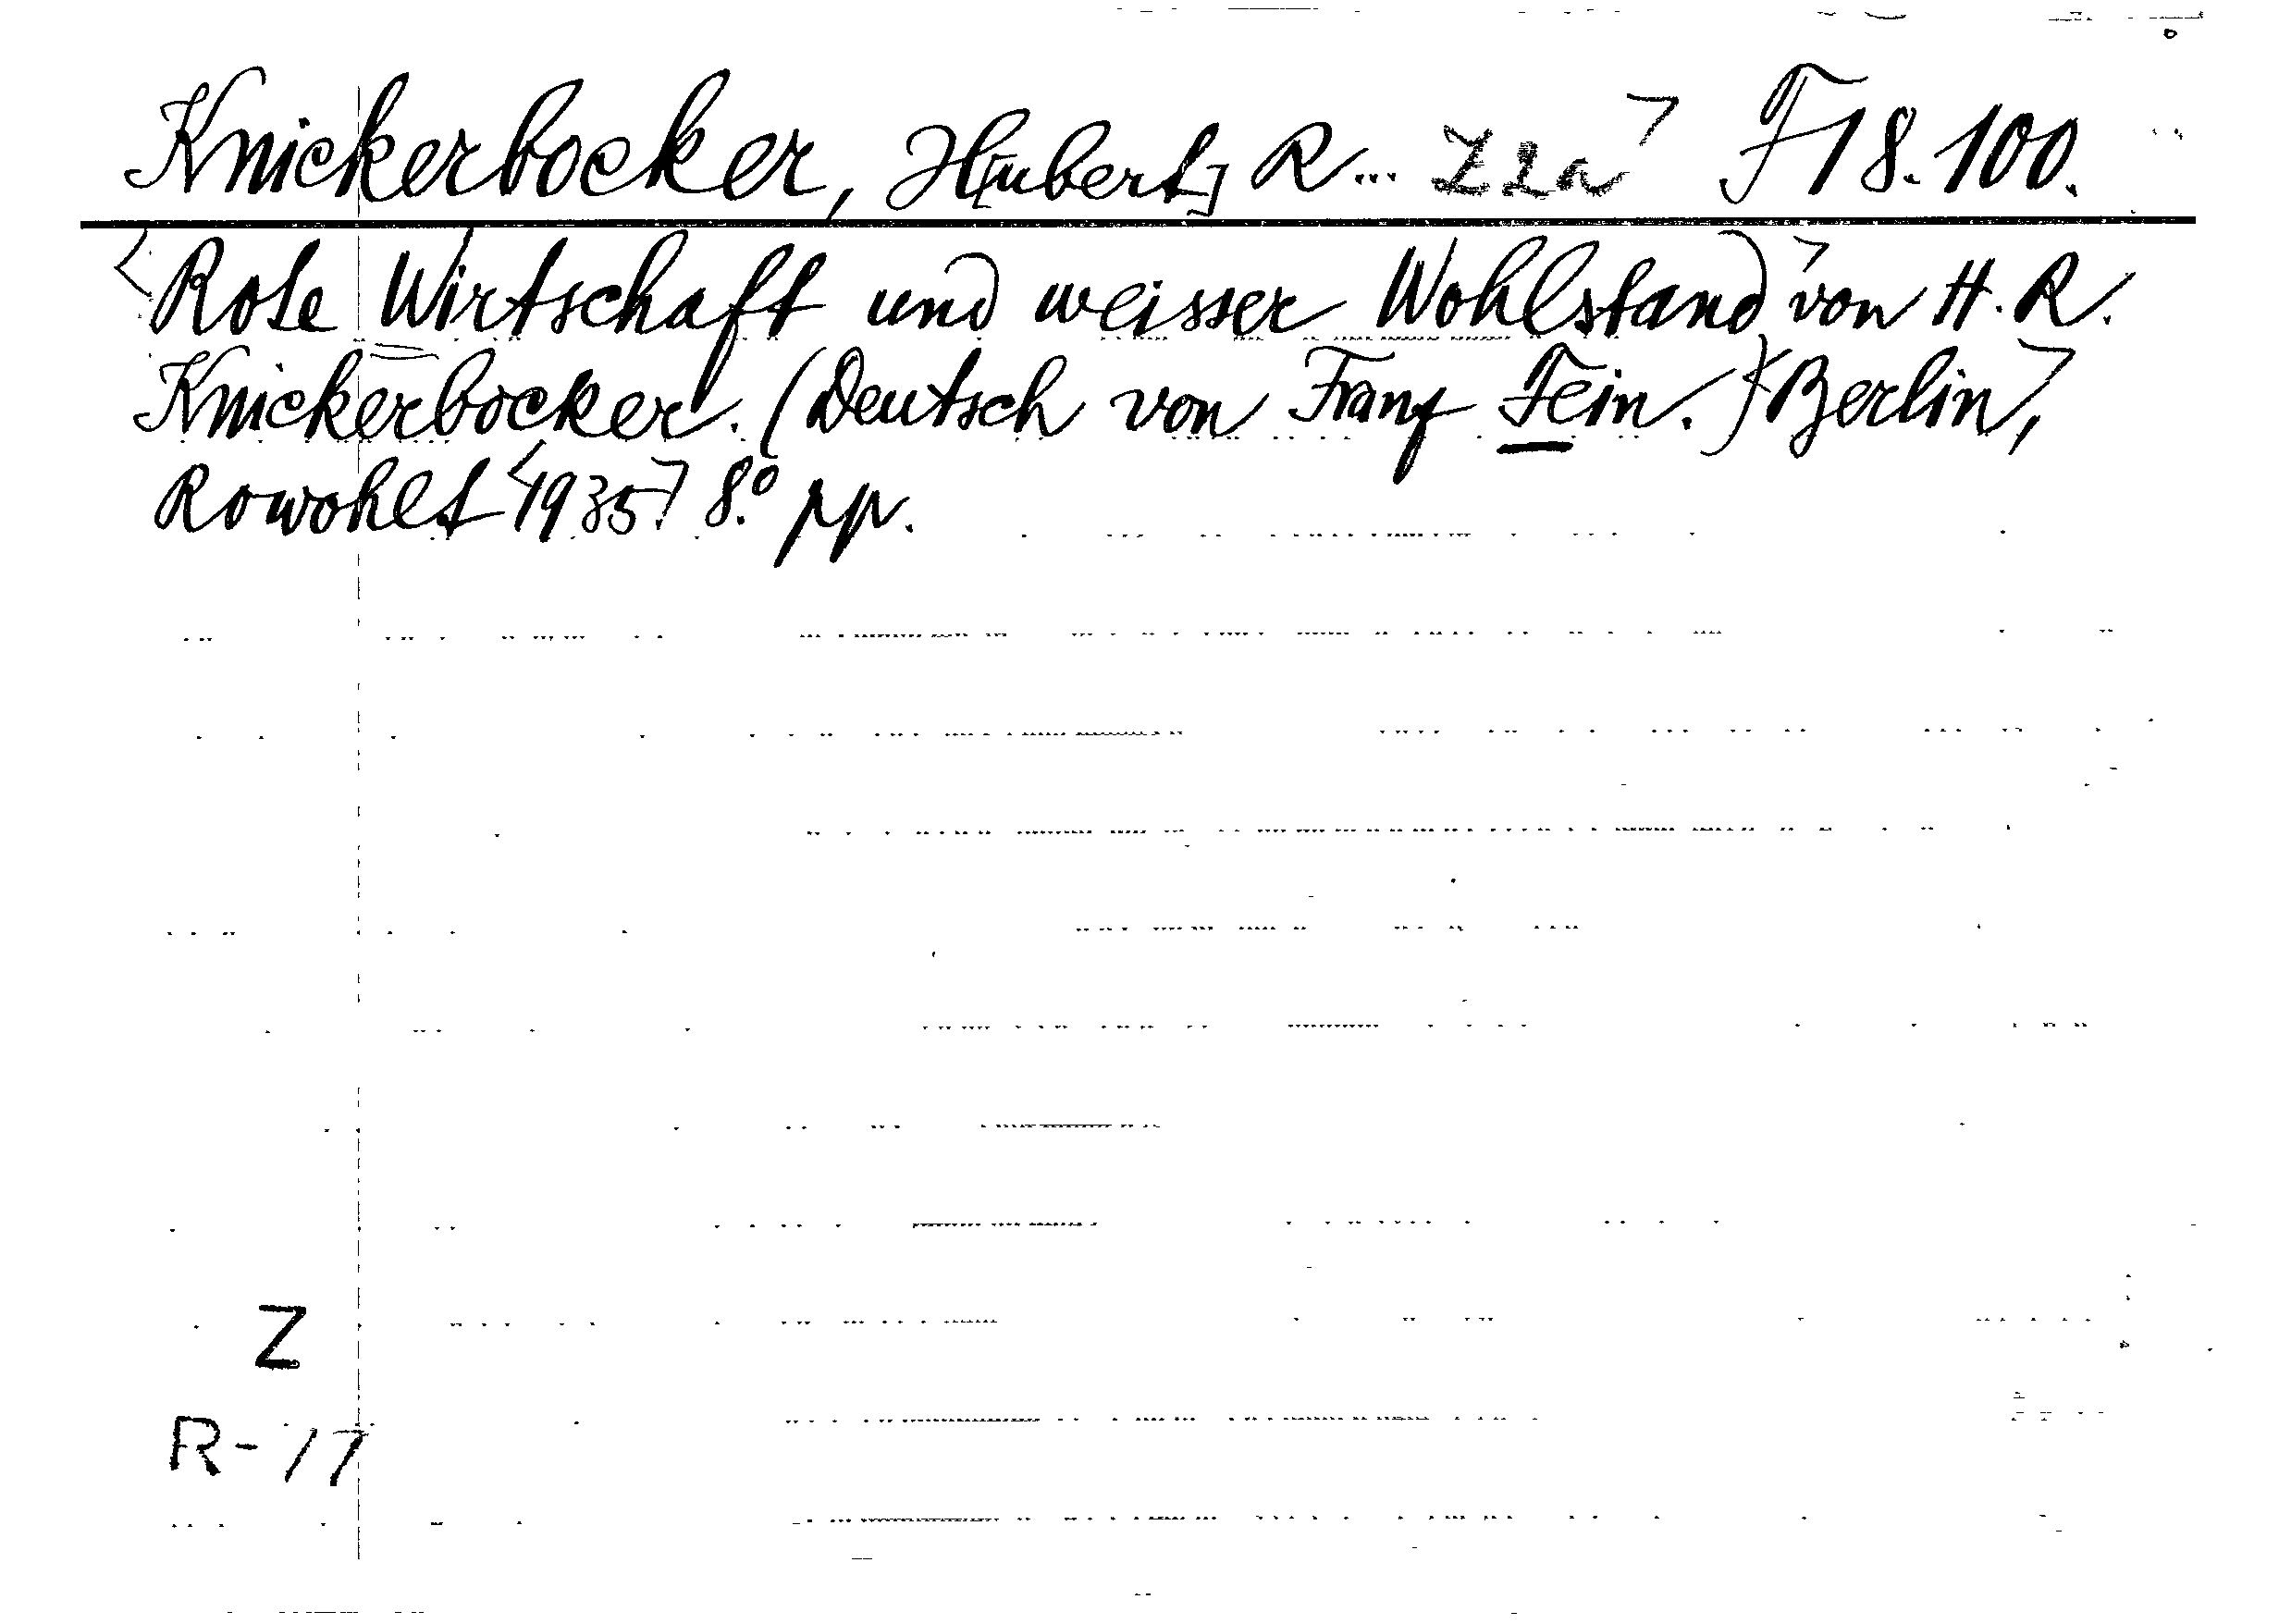 Knickerbocker, H[ubert] R... Z2a F18.100.
Rote Wirtschaft und weisser Wohlstand von H. R.
Knickerbocker. (Deutsch von Franz Fein.) Berlin,
Rowohlt 1935 8.° pp.
Z
R-77